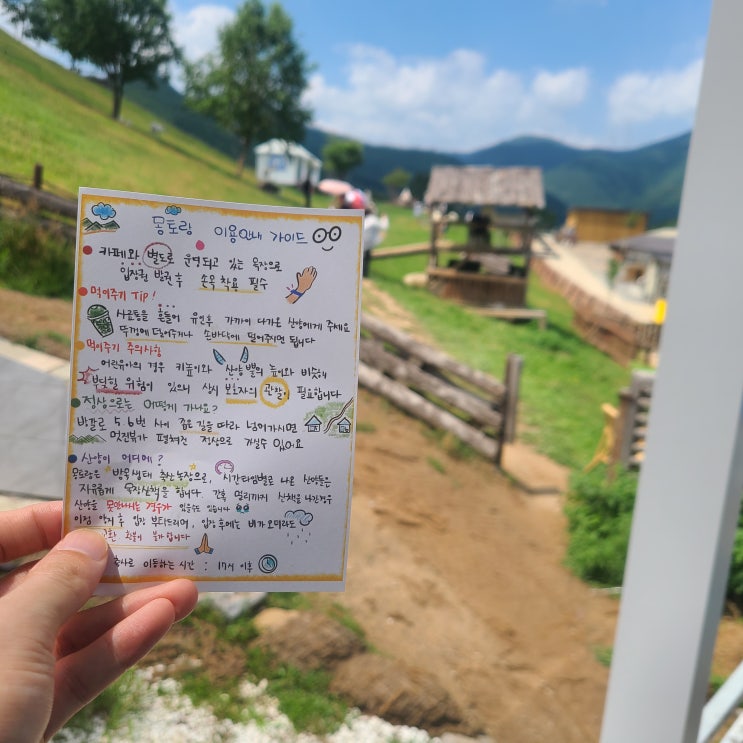 몽토랑 이용안내 가이드
카페와 별도로 운영되고 있는 목장으로
입장권 발권 후 손목 착용 필수
먹이주기 Tip!
사료통을 흔들어 유인후 가까이 다가온 산양에게 주세요
뚜껑에 덜어주거나 손바닥에 덜어주시면 됩니다
먹이주기 주의사항
어린유아의 경우 키높이와 산양 뿔의 높이와 비슷해
부딪힐 위험이 있으니 상시 보호자의 관찰이 필요합니다
정상으로는 어떻게 가나요?
방갈로 5, 6번 사이 좁은 길을 따라 넘어가시면
멋진뷰가 펼쳐진 정상으로 가실수 있어요
산양이 어디에?
몽토랑은 방목생태 축산농장으로, 시간타임별로 나온 산양들은
자유롭게 목장산책을 합니다. 간혹 멀리까지 산책을 나간경우
산양을 못만나시는 경우가 있을수도 있습니다
이점 인지 후 입장 부탁드리며, 입장 후에는 비가 오더라도
교환 환불이 불가합니다
축사로 이동하는 시간 : 17시 이후